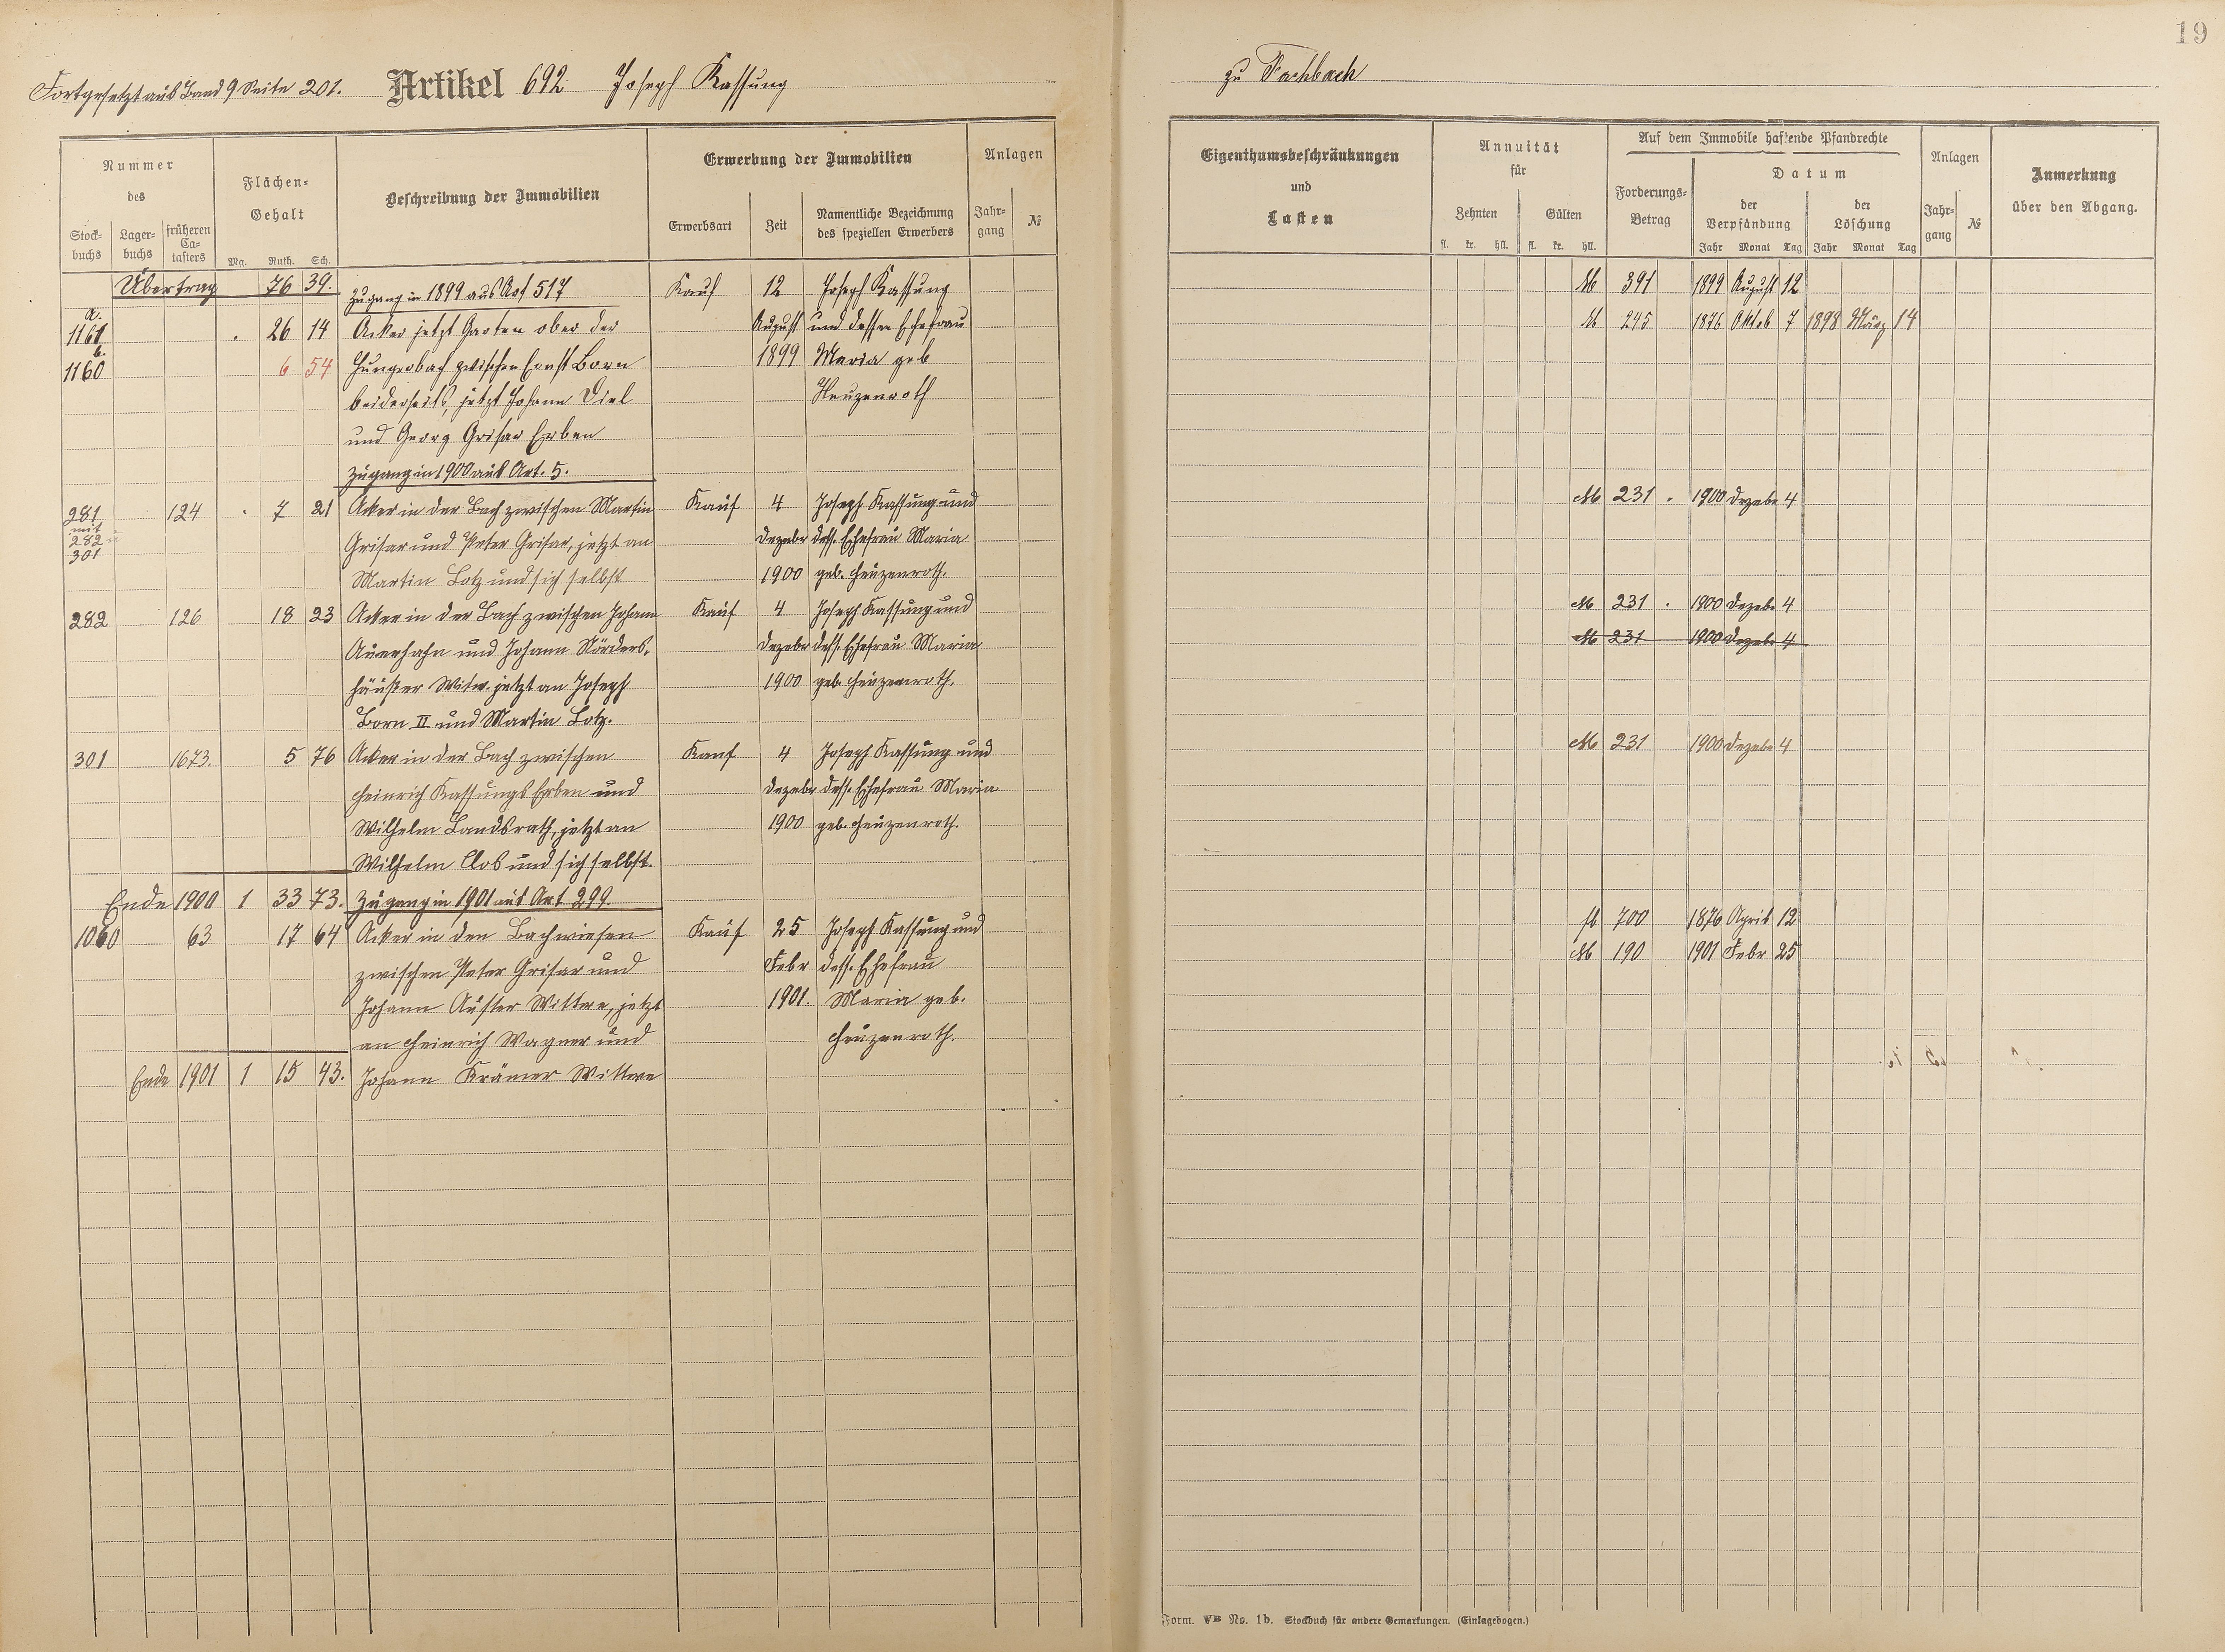 19
Fortgesetzt aus Band 9 Seite 201. Artikel 692 Joseph Kassung
zu Fachbach
Nummer
des
Stock-
buchs
Lager-
buchs
früheren
Ca-
tasters
Flächen-
Gehalt
Mg. Ruth. Sch.
Beschreibung der Immobilien
Erwerbung der Immobilien
Erwerbsart
Zeit
Namentliche Bezeichnung
des speziellen Erwerbers
Anlagen
Jahr-
gang
№
Eigenthumsbeschränkungen
und
Lasten
Annuität
für
Zehnten
Gülten
fl. kr. hll. fl. kr. hll.
Auf dem Immobile haftende Pfandrechte
Forderungs-
Betrag
Datum
der
Verpfändung
der
Löschung
Jahr Monat Tag Jahr Monat Tag
Anlagen
Jahr-
gang
№
Anmerkung
über den Abgang.
Übertrag 76 39. Zugang in 1899 aus Art 517 Kauf 12 Joseph Kassung M 391 1899 August 12
a.
1161 . 26 14 Acker jetzt Garten ober der August und dessen Ehefrau M 245 1876 Oktob 7 1898 März 14
b.
1160 6 54 Hungerbach zwischen Ernst Born 1899 Maria geb
beiderseits, jetzt Johann Diel Heuzeroth
und Georg Grisar Erben
Zugang in 1900 aus Art. 5.
281 124 . 7 21 Acker in der Bach zwischen Martin Kauf 4 Joseph Kassung und M 231 . 1900 Dezebr 4
mit
282
301
Grisar und Peter Grisar, jetzt an Dezebr dess. Ehefrau Maria
Martin Lotz und sich selbst 1900 geb. Heuzenroth.
282 126 18 23 Acker in der Bach zwischen Johann Kauf 4 Joseph Kassung und M 231 . 1900 Dezebr 4
Auerhahn und Johann Nörders- Dezebr dess. Ehefrau Maria M 231 1900 Dezebr 4
häuser Witw. jetzt an Joseph 1900 geb. Heuzenroth.
Born II und Martin Lotz.
301 1673. 5 76 Acker in der Bach zwischen Kauf 4 Joseph Kassung und M 231 1900 Dezebr 4
Heinrich Kassungs Erben und Dezebr dess. Ehefrau Maria
Wilhelm Landsrath, jetzt an 1900 geb. Heuzenroth.
Wilhelm Clos und sich selbst.
Ende 1900 1 33 73. Zugang in 1901 aus Art 299.
1060 63 17 64 Acker in den Bachwiesen Kauf 25 Joseph Kassung und fl 700 1876 April 12
zwischen Peter Grisar und Febr dess. Ehefrau M 190 1901 Febr 25
Johann Auster Wittwe, jetzt 1901. Maria geb.
an Heinrich Wagner und Heuzenroth.
Ende 1901 1 15 43. Johann Krämer Wittwe
Form. VB No. 1b. Stockbuch für andere Gemarkungen. (Einlagebogen.)